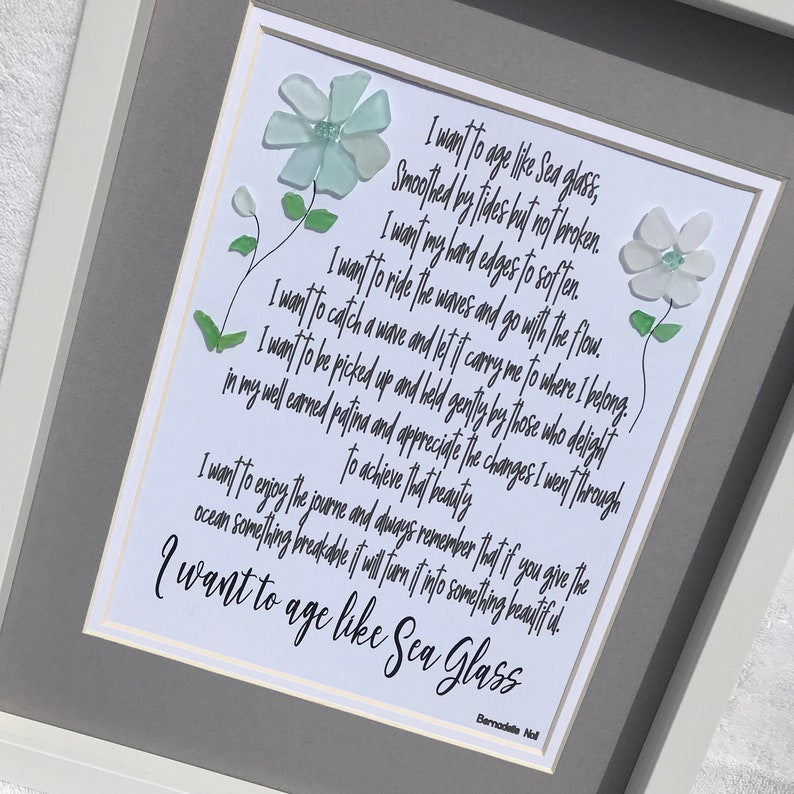 I want to age like Sea glass,
Smoothed by tides but not broken.
I want my hard edges to soften.
I want to ride the waves and go with the flow.
I want to catch a wave and let it carry me to where I belong.
I want to be picked up and held gently by those who delight
in my well earned patina and appreciate the changes I went through
to achieve that beauty
I want to enjoy the journe and always remember that if you give the
ocean something breakable it will turn it into something beautiful.
I want to age like Sea Glass
Bernadette Noll